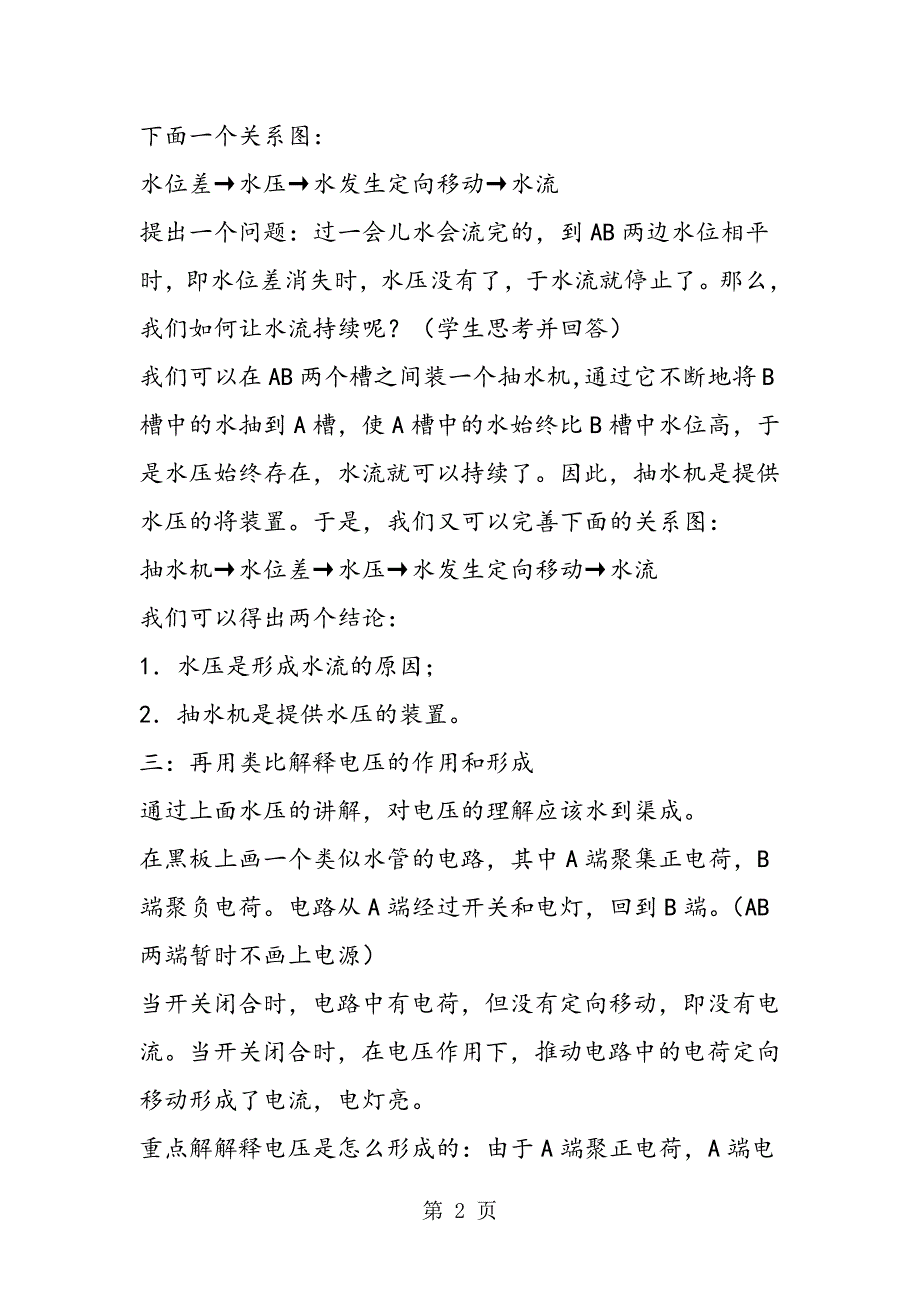 下面一个关系图：
水位差→水压→水发生定向移动→水流
提出一个问题：过一会儿水会流完的，到 AB 两边水位相平
时，即水位差消失时，水压没有了，于水流就停止了。那么，
我们如何让水流持续呢？（学生思考并回答）
我们可以在 AB 两个槽之间装一个抽水机,通过它不断地将 B
槽中的水抽到 A 槽，使 A 槽中的水始终比 B 槽中水位高，于
是水压始终存在，水流就可以持续了。因此，抽水机是提供
水压的将装置。于是，我们又可以完善下面的关系图：
抽水机→水位差→水压→水发生定向移动→水流
我们可以得出两个结论：
1．水压是形成水流的原因；
2．抽水机是提供水压的装置。
三：再用类比解释电压的作用和形成
通过上面水压的讲解，对电压的理解应该水到渠成。
在黑板上画一个类似水管的电路，其中 A 端聚集正电荷，B
端聚负电荷。电路从 A 端经过开关和电灯，回到 B 端。（AB
两端暂时不画上电源）
当开关闭合时，电路中有电荷，但没有定向移动，即没有电
流。当开关闭合时，在电压作用下，推动电路中的电荷定向
移动形成了电流，电灯亮。
重点解解释电压是怎么形成的：由于 A 端聚正电荷，A 端电
第 2 页